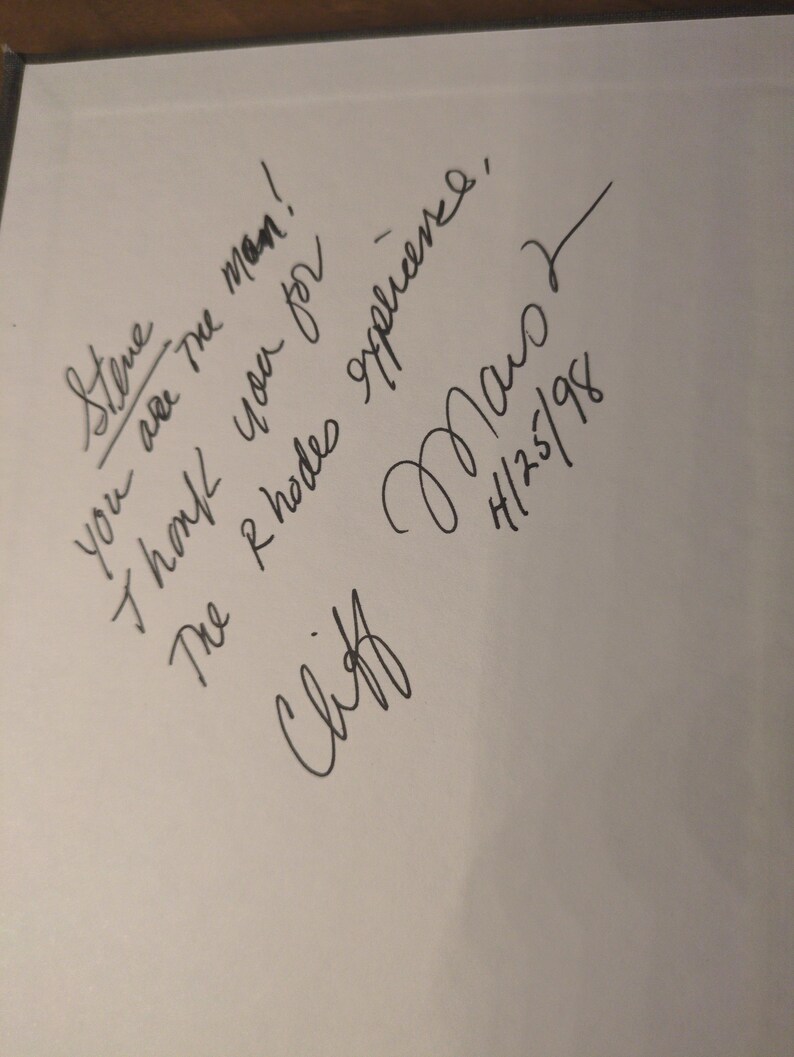 Steve
you are The Man!
Thank you for
The Rhodes experience.
Cliff
4/25/98